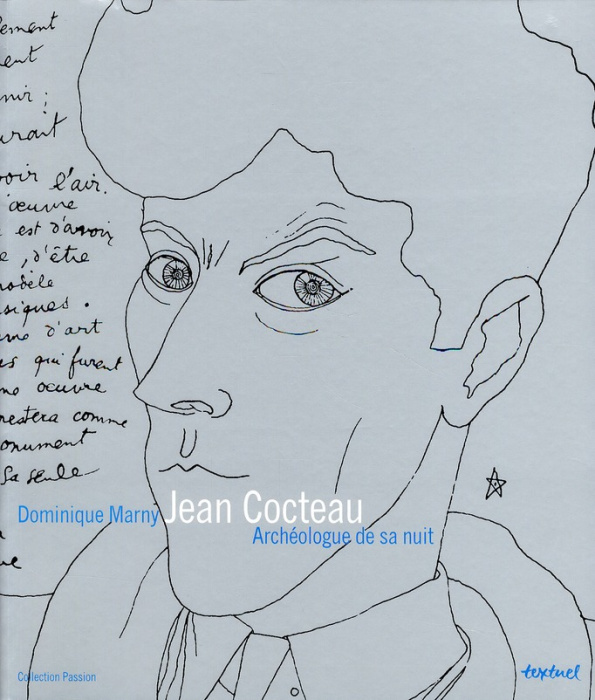 lement
ent
nir ;
urait
voir l'air.
'œuvre
est d'avoir
e, d'être
modèle
siques.
une d'art
es qui furent
me œuvre
restera comme
onument
Sa seule
Dominique Marny Jean Cocteau
Archéologue de sa nuit
ve
Collection Passion
textuel